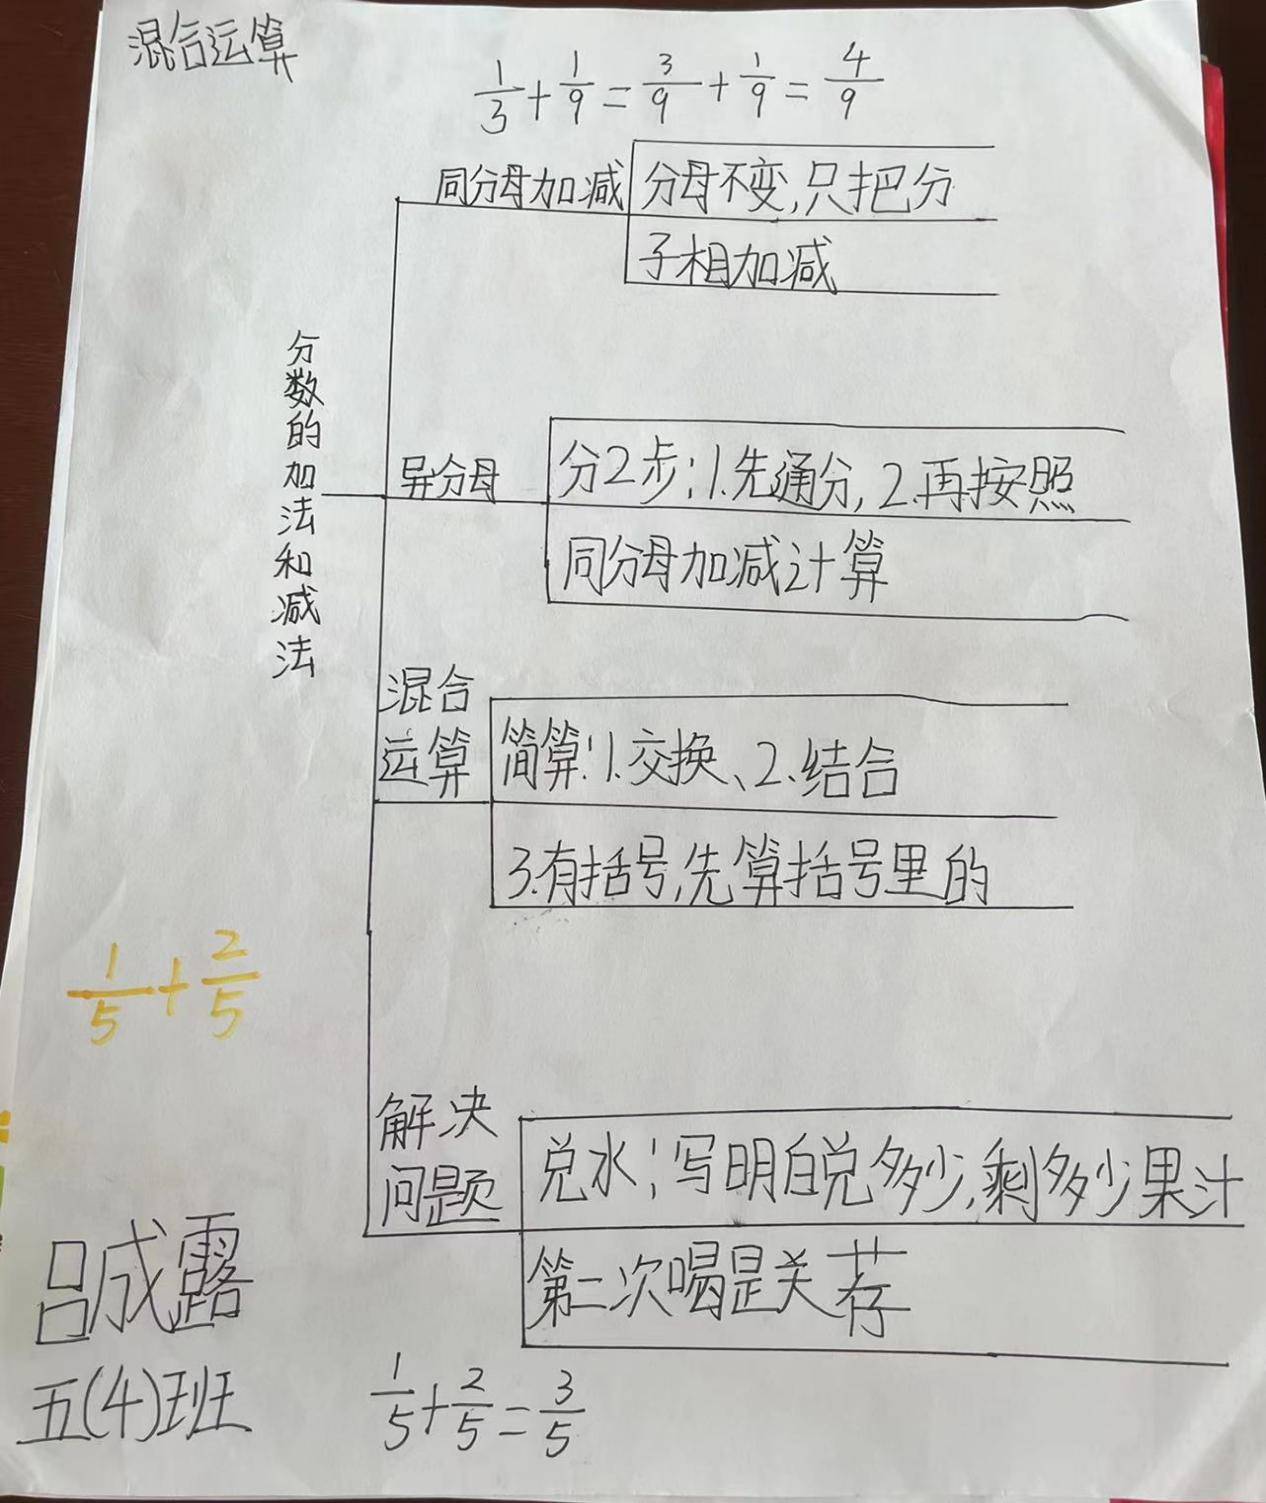 混合运算
1/3+1/9=3/9+1/9=4/9
同分母加减
分母不变,只把分
子相加减
分数的加法和减法
异分母
分2步:1.先通分,2.再按照
同分母加减计算
混合
运算
简算:1.交换、2.结合
3.有括号,先算括号里的
1/5+2/5
解决
问题
兑水:写明白兑多少,剩多少果汁
第二次喝是关荐
吕成露
五(4)班
1/5+2/5=3/5